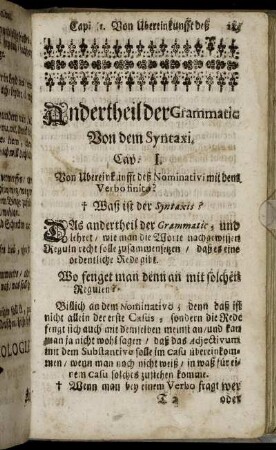 Capi 1. Von Ubereinkunfft deß
Andertheil der Grammatic
Von dem Syntaxi.
Cap: I.
Von Ubereinkunfft deß Nominativi mit dem
Verbo finito?
† Waß ist der Syntaxis?
DAs andertheil der Grammatic, und
lehret, wie man die Worte nach gewissen
Reguln recht solle zusammensetzen, daß es eine
ordentliche Rede gibt.
Wo fenget man denn an mit solchen
Regulen?
Billich an dem Nominativo; denn daß ist
nicht allein der erste Casus, sondern die Rede
fengt sich auch mit demselben meinst an, und kan
man ja nicht wohl sagen, daß das Adjectivum
mit dem Substantivo solle im Casu übereinkom-
men, wenn man noch nicht weiß, in waß für ei-
nem Casu solches zustehen komme.
† Wenn man bey einem Verbo fragt wer
oder